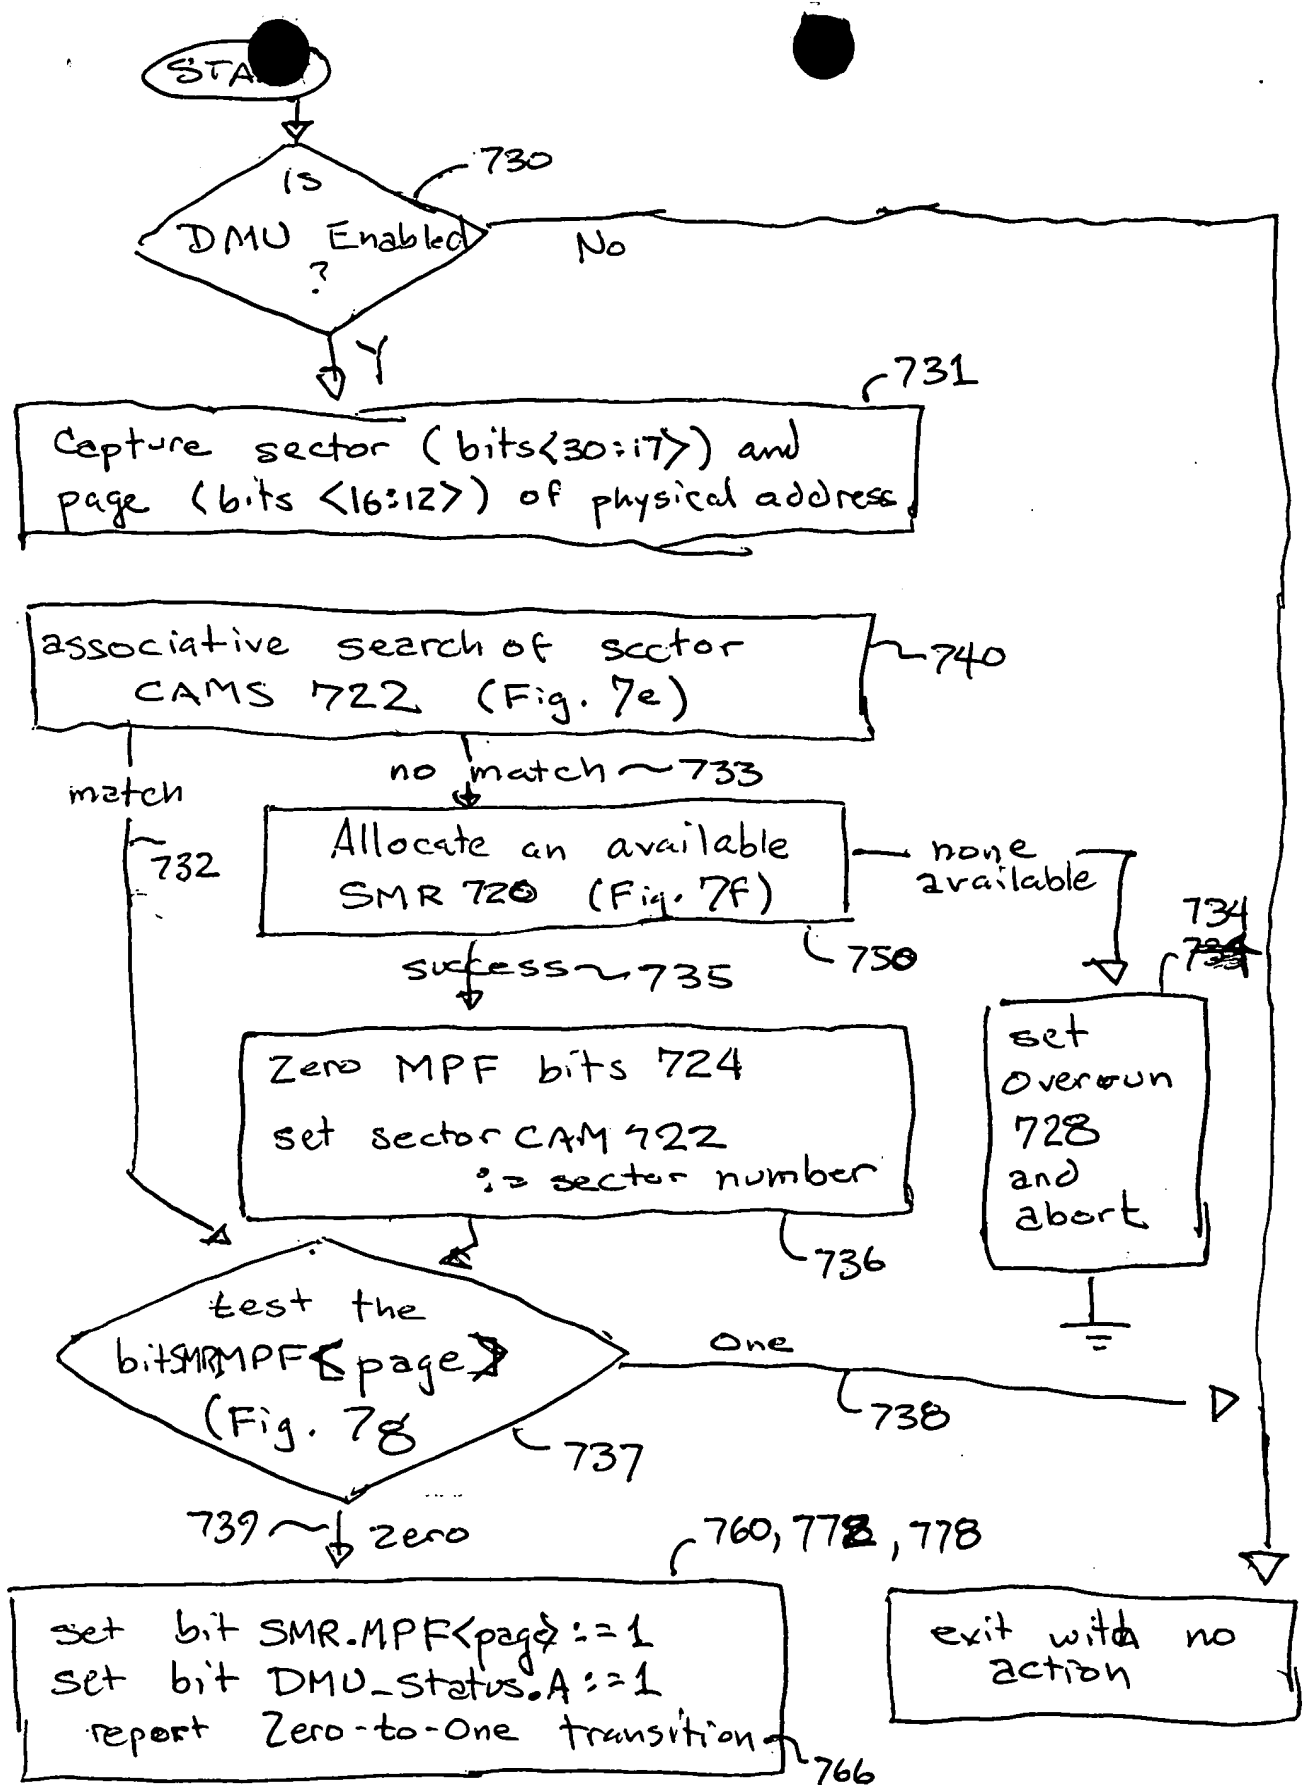 STA
is
730
DMU Enabled
?
No
Y
731
Capture sector (bits<30:17>) and
page (bits <16:12>) of physical address
associative search of sector
CAMS 722 (Fig. 7e)
740
match
no match ~ 733
732
Allocate an available
SMR 720 (Fig. 7f)
none
available
750
734
success ~ 735
Zero MPF bits 724
set sector CAM 722
:= sector number
736
set
overrun
728
and
abort
test the
bit SMR.MPF<page>
(Fig. 7g
737
One
738
739
zero
760, 772, 778
set bit SMR.MPF<page> := 1
set bit DMU_Status.A := 1
report Zero-to-One transition
766
exit with no
action